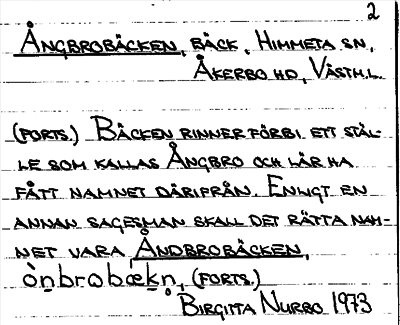 2
ÅNGBROBÄCKEN, BÄCK, HIMMETA SN,
ÅKERBO HD, VÄSTM.L.
(FORTS.) BÄCKEN RINNER FÖRBI ETT STÄL-
LE SOM KALLAS ÅNGBRO OCH LÄR HA
FÅTT NAMNET DÄRIFRÅN. ENLIGT EN
ANNAN SAGESMAN SKALL DET RÄTTA NAM-
NET VARA ÅNDBROBÄCKEN,
ònbrobækn, (FORTS.)
BIRGITTA NURBO 1973